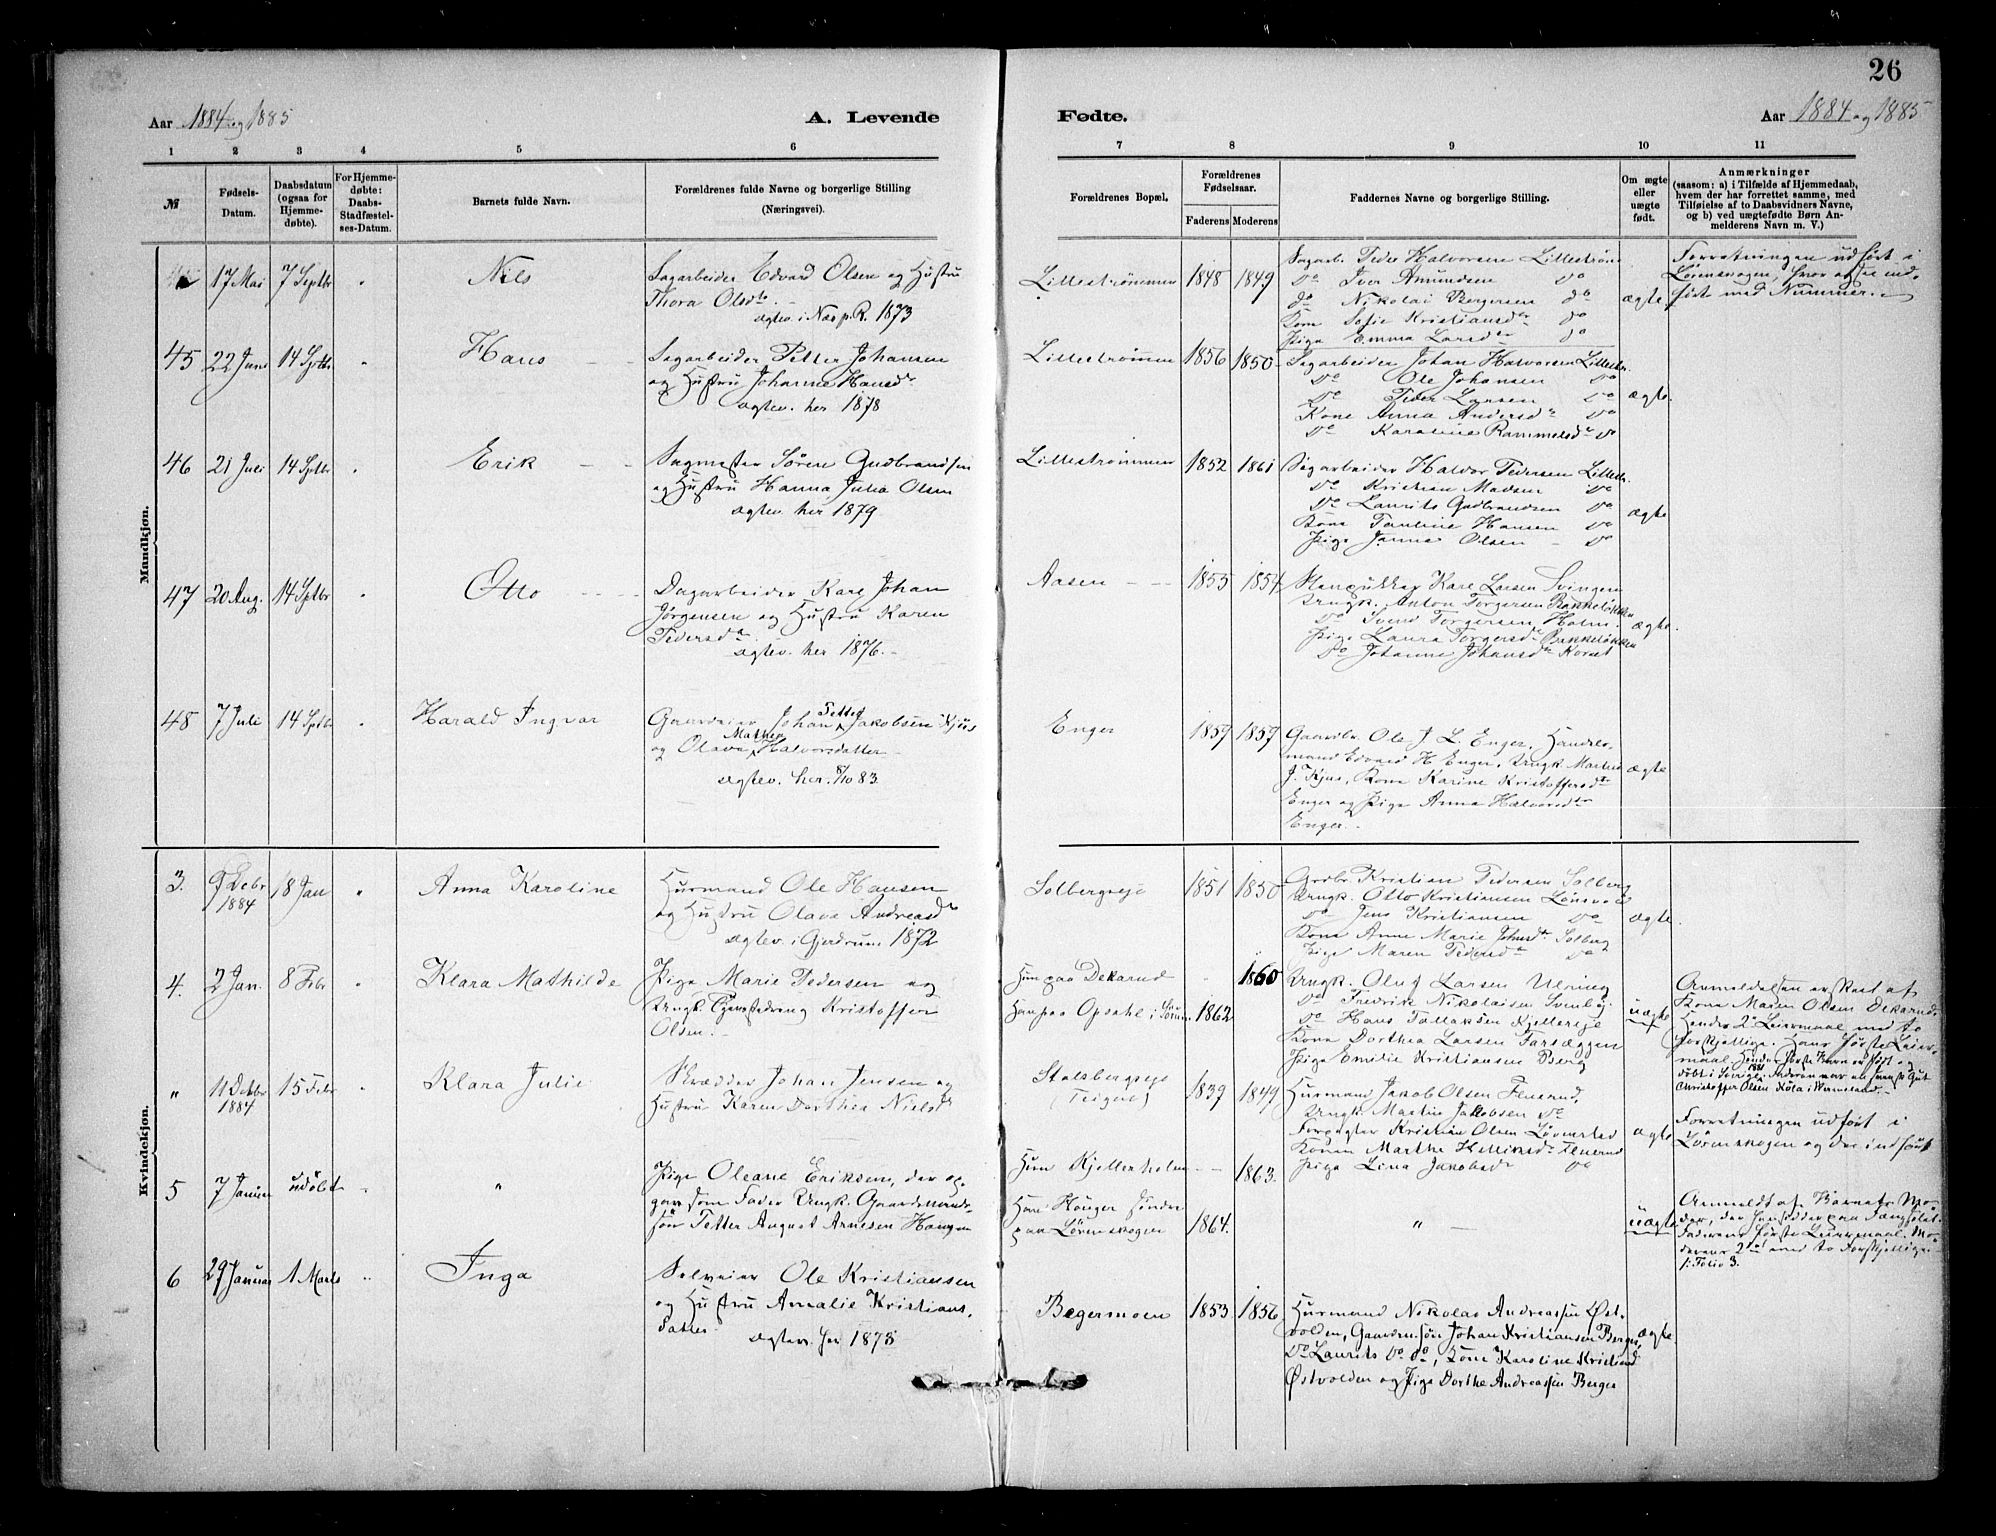 26
Aar 1884 og 1885
A. Levende
Fødte.
Aar 1884 og 1885
1 2 3 4 5 6 7 8 9 10 11
№
Fødsels-
Datum.
Daabsdatum
(ogsaa for
Hjemme-
døbte).
For Hjemme-
døbte:
Daabs-
Stadfæstel-
ses-Datum.
Barnets fulde Navn.
Forældrenes fulde Navne og borgerlige Stilling
(Næringsvei).
Forældrenes Bopæl.
Forældrenes
Fødselsaar.
Faderens Moderens
Faddernes Navne og borgerlige Stilling.
Om ægte
eller
uægte
født.
Anmærkninger
(saasom: a) i Tilfælde af Hjemmedaab,
hvem der har forrettet samme, med
Tilføielse af to Daabsvidners Navne,
og b) ved uægtefødte Børn An-
melderens Navn m. V.)
Mandkjøn.
17 Mai
7 Septbr
"
Nils
Sagarbeider Edvard Olsen og Hustru
Thora Olsdtr
ægtev. i Næs p. R. 1873
Lillestrømmen
1848
1849
Sagarb. Peder Halvorsen Lillestrøm
do Iver Amundsen do
do Nikolai Bergersen do
Kone Sofie Kristiansdr do
Pige Emma Larsdr do
ægte
Forretningen udført i
Lørenskogen, hvor ogsaa ind-
ført med Nummer.
45
22 Juni
14 Sptbr
"
Hans
Sagarbeider Petter Johansen
og Hustru Johanne Hansdr
ægtev. her 1878
Lillestrømmen
1856
1850
Sagarbeider Johan Halvorsen Lillestr.
do Ole Johansen do
do Peder Larsen do
Kone Anna Andersdr do
do Karoline Rammelsdr do
ægte.
46
21 Juli
14 Sptbr
"
Erik
Sagmester Sören Gudbrandsen
og Hustru Hanna Julia Olsen
ægtev. her 1879
Lillestrømmen
1852
1861
Sagarbeider Halvor Pedersen Lillestr.
do Kristian Madsen do
do Laurits Gudbrandsen do
Kone Pauline Hansen do
Pige Janna Olsen do
ægte
47
20 Aug.
14 Sptbr
"
Otto
Dagarbeider Karl Johan
Jørgensen og Hustru Karen
Pedersdr
ægtev. her 1876.
Aasen
1855
1854
Karl Larsen Svingen
Ungk. Anton Torgersen Bakkeløkken
do Svend Torgersen Holm
Pige Laura Torgersdr Bakkeløkken
do Johanne Johansdr
ægte.
48
7 Juli
14 Sptbr
"
Harald Ingvar
Gaardeier Johan Petter Jakobsen Kjus
og Olava Mathea Halvorsdatter
ægtev. her. 8/10 83.
Enger
1859
1859
Gaardbr. Ole J. L. Enger, Handels-
mand Edvard H. Enger, Ungk Martin
J. Kjus, Kone Karine Kristoffersdr
Enger og Pige Anna Halvorsdtr
Enger.
ægte
Kvindekjøn.
3.
9 Debr
1884
18 Jan
"
Anna Karoline
Husmand Ole Hansen
og Hustru Olava Andreasdr
ægtev. i Gjerdrum 1872
Solbergseje
1851
1850
Grdbr. Kristian Pedersen Solberg
Ungk. Otto Kristiansen Lønsvold
do Jens Kristiansen do
Kone Anne Marie Johnsdr Solberg
Pige Maren Pedersdr do
ægte
4.
2 Jan.
8 Febr
"
Klara Mathilde
Pige Marie Pedersen og
Ungk. Kristoffer
Olsen.
Hun paa Dekarud
Han paa Opsahl i Sørum
1862
1860
Ungk. Oluf Larsen Ulning
do Fredrik Nikolaisen Svenby
do Hans Tollaksen Kjellerseje
Kone Dorthea Larsen Farseggen
Pige Emilie Kristiansen Berg
uægte
Anmeldelsen er skeet af
Kone Maren Olsen Dekarud.
Hendes 2d Leiermaal med to
forskjellige. Hans første Leier-
maal. Hendes første Barn er født og
Christoffer Olsen Köla i Wermeland.
"
11 Debr
1884
15 Febr
"
Klara Julie
Skrædder Johan Jensen og
Hustru Karen Dorthea Nielsdr
Stalsbergseje
(Teigen)
1839
1849
Husmand Jakob Olsen Fluerud,
Ungk. Martin Jakobsen do
Forpagter Kristian Olsen Løvenstad
Konen Marthe Helliksdr Fluerud
Pige Lina Jakobsdr do
ægte
Forretningen udført i
Lørenskogen og der indført
5
7 Januar
udöbt
"
"
Pige Oleane Eriksen, der op-
gav som Fader Ungk. Gaardmands-
søn Petter August Arnesen Haugen
Hun Kjellerholen
Han Haugen søndre
paa Lørenskogen
1864.
1863.
"
uægte
Anmeldt af Barnets Mo-
der, der
Faderens første Leiermaal. Mo-
derens 2det med to forskjellige.
1: Folio 3.
6
29 Januar
1 Marts
"
Inga
Selveier Ole Kristiansen
og Hustru Amalie Kristians-
datter
ægtev. her 1873
Bøgermoen
1853
1856
Husmand Nikolai Andreassen Øst-
volden, Gaardm.søn Johan Kristiansen Berger,
do Laurits do do, Kone Karoline Kristians
Østvolden og Pige Dorthe Andreassen Berger
ægte